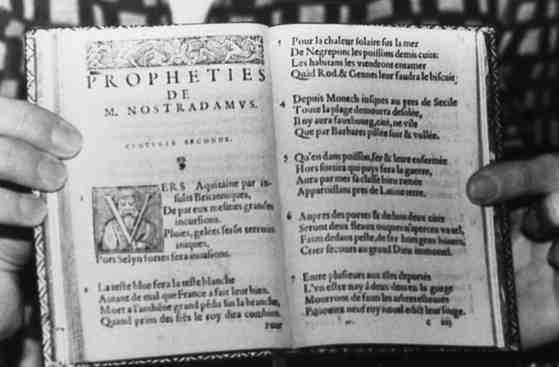 PROPHETIES
DE
M. NOSTRADAMVS.
CENTVRIE SECONDE.
1
VERS Aquitaine par in-
sults Britanniques,
De par eux mesmes grandes
incursions.
Pluies, gelées feront terroirs
iniques,
Port Selyn fortes fera inuasions.
2
La teste blue fera la teste blanche
Autant de mal que France a fait leur bien.
Mort a l'anthéne grand pédu sus la branche,
Quand prins des siés le roy dira combien.
3 Pour la chaleur solaire sus la mer
De Negrepont les poissons demis cuits:
Les habitans les viendront entamer
Quád Rod. & Gennes leur faudra le biscuit,
4 Depuis Monech iusques au pres de Secile
Toute la plage demourra desolée,
Il ny aura fauxbourg, cité, ne vile
Que par Barbares pillée soit & vollée.
5 Qu'en dans poisson, fer & lettre enfermée
Hors sortira qui pys fera la guerre,
Aura par mer sa classe bien ramée
Apparoissant pres de Latine terre.
6 Aupres des portes & dedans deux cités
Seront deux fleaux onques n'aperceu vn tel,
Faim dedans peste, de fer hors gens boutés,
Crier secours au grand Dieu immortel.
7 Entre plusieurs aux isles deportés
L'vn estre nay a deux dens en la gorge
Mourront de faim les arbres esbroutés
Pour eux neuf roy nouel edict leur forge.